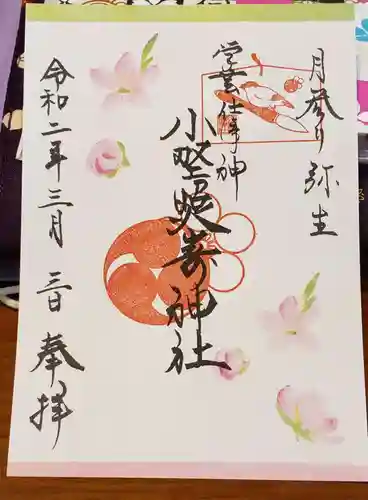 月参り 弥生
学業成就神
小野照崎神社
令和二年三月三日 奉拝